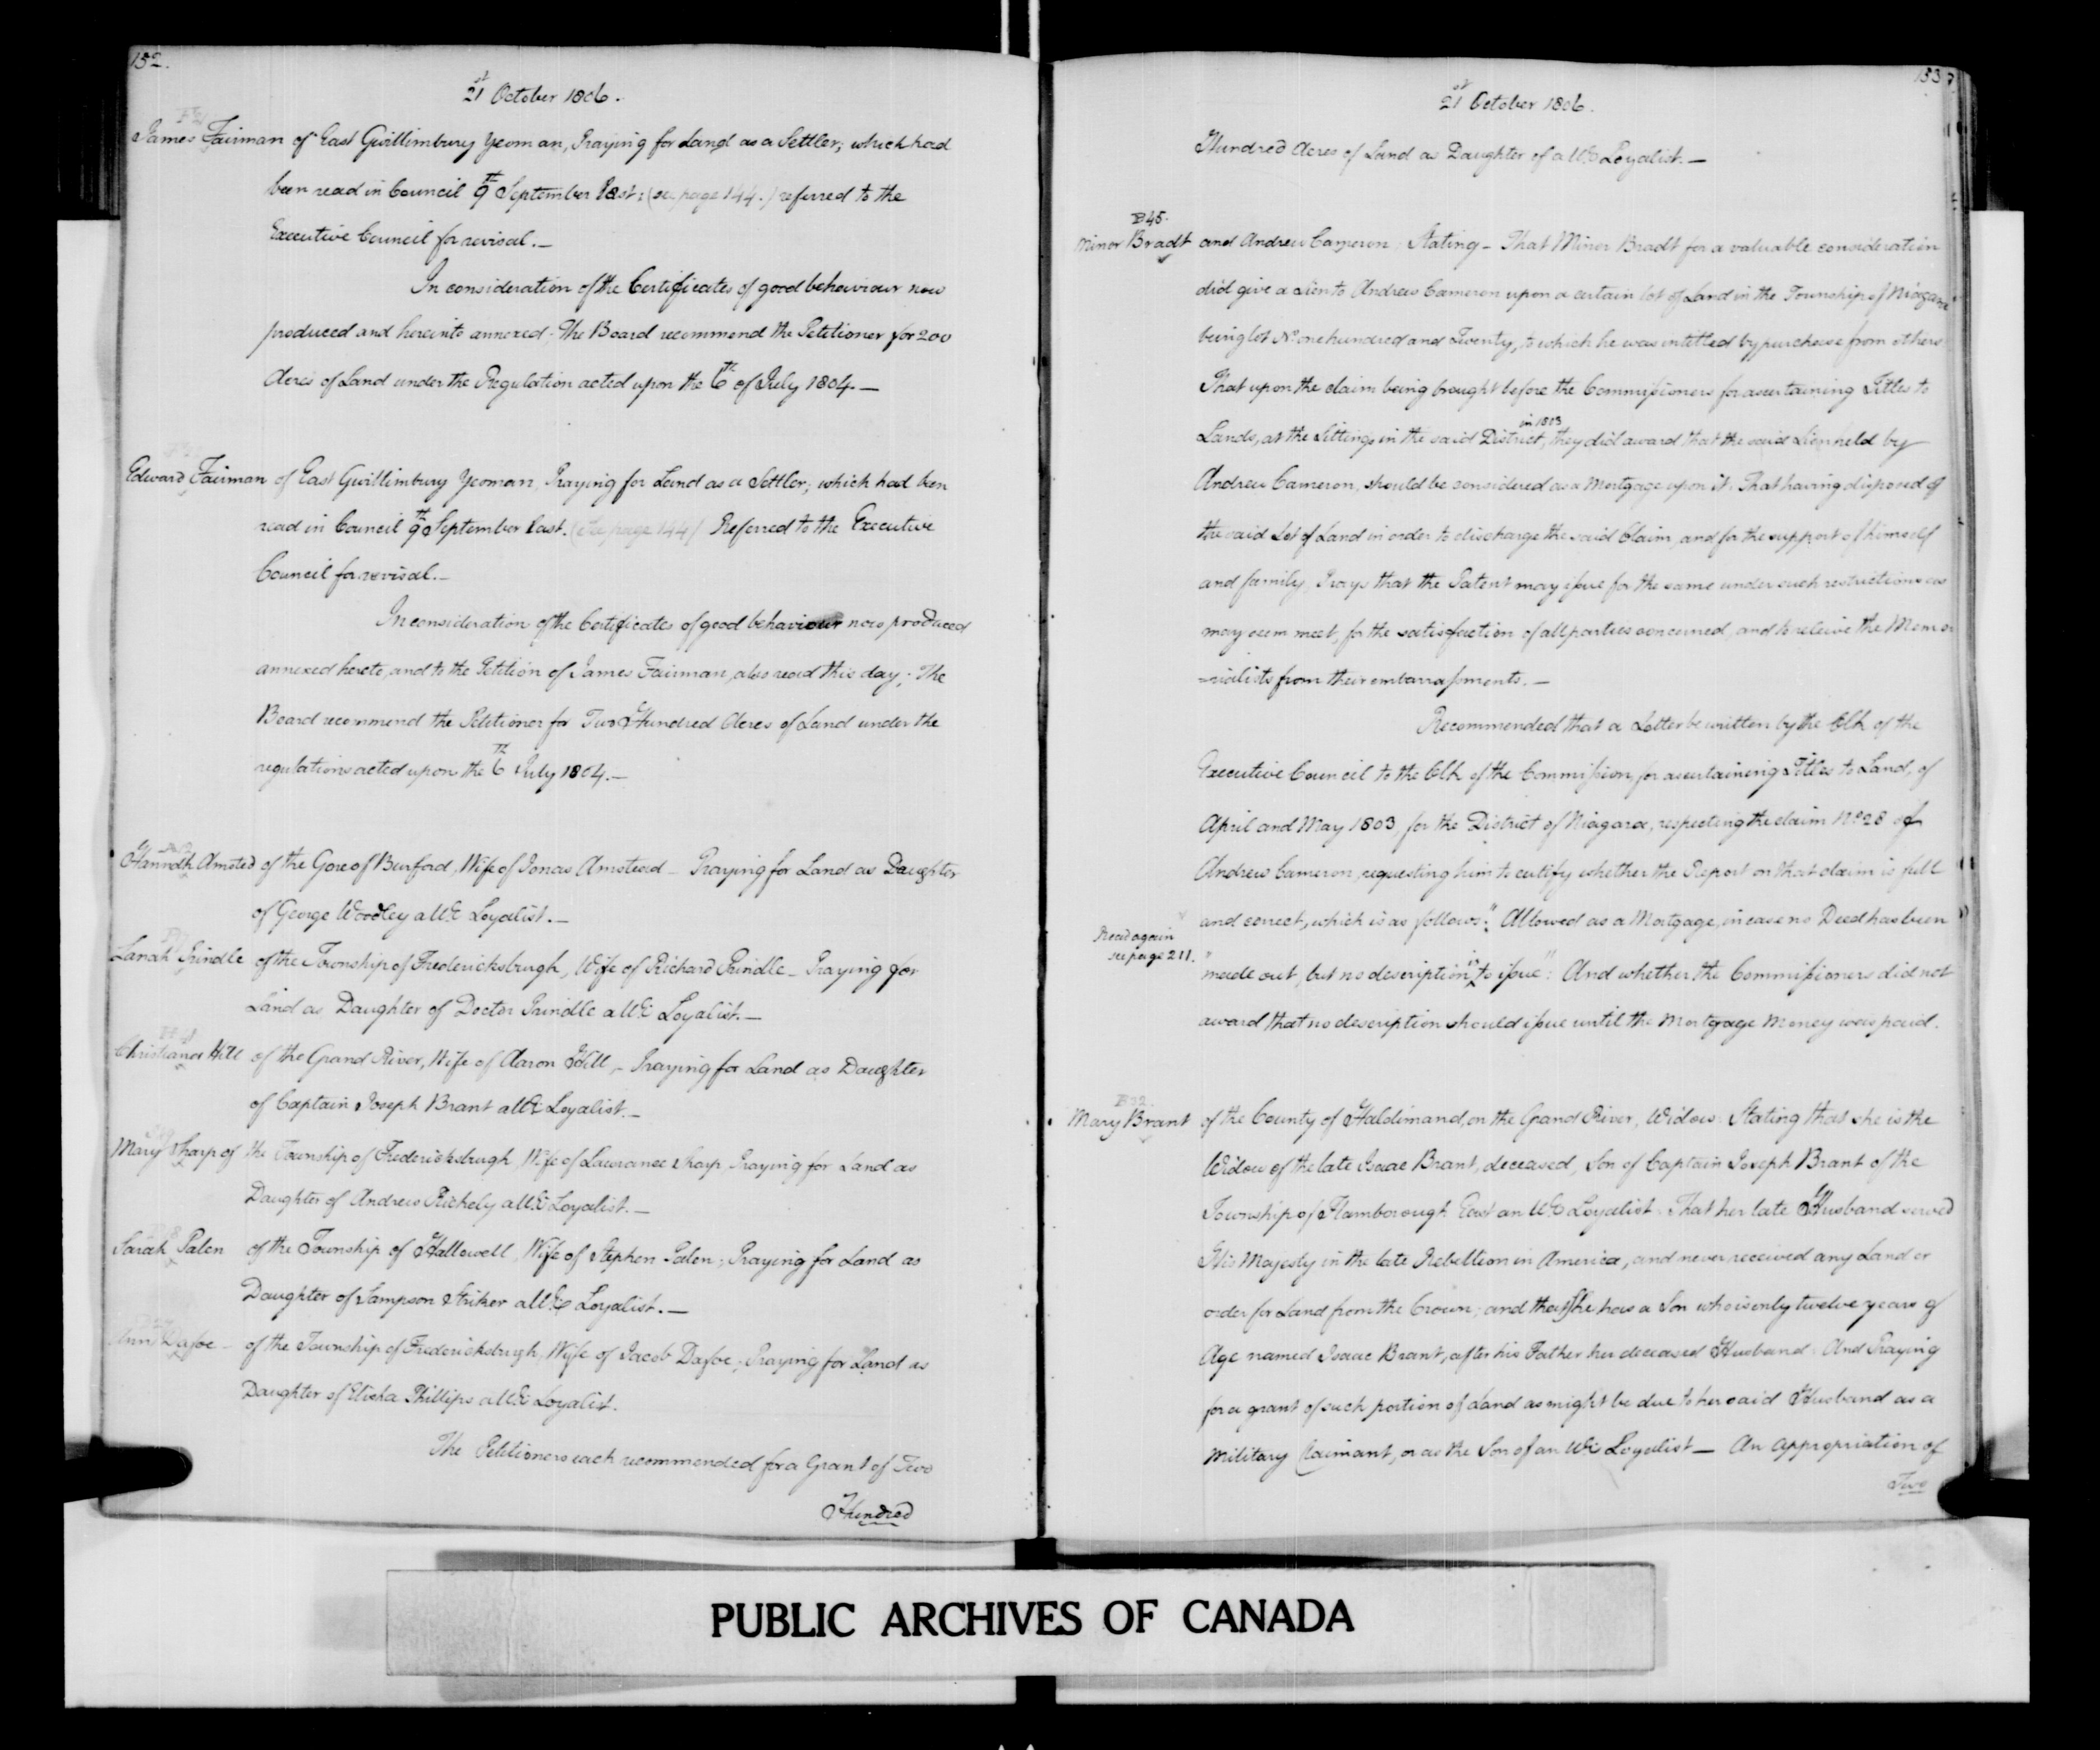 152.
21st October 1806.
James Fairman of East Gwillimbury Yeoman, Praying for Land as a Settler; which had
been read in Council 9th September last; (see page 144.) referred to the
Executive Council for revisal.—
In consideration of the Certificates of good behaviour now
produced and hereinto annexed; The Board recommend the Petitioner for 200
Acres of Land under the Regulation acted upon the 6th of July 1804.—
Edward Fairman of East Gwillimbury Yeoman, Praying for Land as a Settler; which had been
read in Council 9th September last. (see page 144) Referred to the Executive
Council for revisal.—
In consideration of the Certificates of good behaviour now produced
annexed hereto, and to the Petition of James Fairman, also read this day; The
Board recommend the Petitioner for Two Hundred Acres of Land under the
regulations acted upon the 6th July 1804.—
Hannah Amsted of the Gore of Burford, Wife of Jonas Amstead — Praying for Land as Daughter
of George Woodley a UE Loyalist.—
Lanah Prindle of the Township of Fredericksburgh, Wife of Richard Prindle — Praying for
Land as Daughter of Doctor Prindle a UE Loyalist.—
Christiana Hill of the Grand River, Wife of Aaron Hill, — Praying for Land as Daughter
of Captain Joseph Brant a UE Loyalist.—
Mary Sharp of the Township of Fredericksburgh, Wife of Lawrance Sharp, Praying for Land as
Daughter of Andrew Rickely a UE Loyalist.—
Sarah Palen of the Township of Hallowell, Wife of Stephen Palen; Praying for Land as
Daughter of Sampson Striker a UE Loyalist.—
Ann Dafoe — of the Township of Fredericksburgh, Wife of Jacob Dafoe; Praying for Land as
Daughter of Elisha Phillips a UE Loyalist.
The Petitioners each recommended for a Grant of Two
Hundred
153
21st October 1806.
Hundred Acres of Land as Daughter of a UE Loyalist.—
B 45.
Minor Bradt and Andrew Cameron, Stating — That Minor Bradt for a valuable consideration
did give a Lien to Andrew Cameron upon a certain lot of Land in the Township of Niagara
being lot No. one hundred and Twenty, to which he was intitled by purchase from others
That upon the claim being brought before the Commissioners for ascertaining Titles to
in 1803
Lands, at the Sittings in the said District, they did award that the said Lien held by
Andrew Cameron, should be considered as a Mortgage upon it. That having disposed of
the said Lot of Land in order to discharge the said Claim, and for the support of himself
and family, Prays that the Patent may issue for the same under such restrictions as
may seem meet, for the satisfaction of all parties concerned, and to releive the Memo
-rialists from their embarrassments.—
Recommended that a Letter be written by the Clk of the
Executive Council to the Clk of the Commission for ascertaining Titles to Land, of
April and May 1803, for the District of Niagara, respecting the claim No 28 of
Andrew Cameron, requesting him to certify whether the Report on that claim is full
and correct, which is as follows: "Allowed as a Mortgage, in case no Deed has been
Read again
see page 211.
"made out, but no description is to issue": And whether the Commissioners did not
award that no description should issue until the Mortgage Money was paid.
B 32.
Mary Brant of the County of Haldimand, on the Grand River, Widow. Stating that she is the
Widow of the late Isaac Brant, deceased, Son of Captain Joseph Brant of the
Township of Flamborough East an UE Loyalist. That her late Husband served
His Majesty in the late Rebellion in America, and never received any Land or
order for Land from the Crown; and that She has a Son who is only twelve years of
Age named Isaac Brant, after his Father her deceased Husband. And Praying
for a grant of such portion of Land as might be due to her said Husband as a
Military Claimant, or as the Son of an UE Loyalist — An appropriation of
Two
PUBLIC ARCHIVES OF CANADA